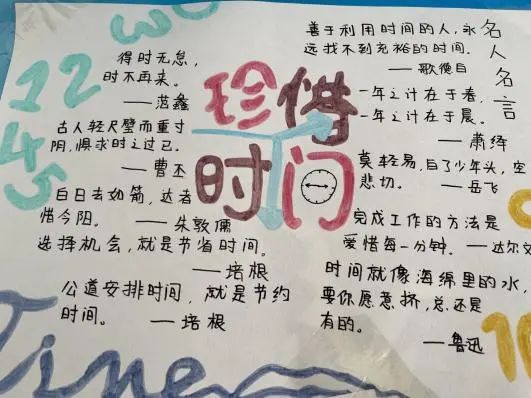 12
45
得时无怠，
时不再来。
——范蠡
古人轻尺璧而重寸
阴，惧求时之过已。
——曹丕
白日去如箭，达者
惜今阳。
——朱敦儒
选择机会，就是节省时间。
——培根
公道安排时间，就是节约
时间。
——培根
Time
珍惜
时间
善于利用时间的人，永
远找不到充裕的时间。
——歌德自
一年之计在于春，
一年之计在于晨。
——萧绎
莫轻易，白了少年头，空
悲切。
——岳飞
完成工作的方法是
爱惜每一分钟。——达尔文
时间就像海绵里的水，
要你愿意挤，总还是
有的。
——鲁迅
名人名言
10